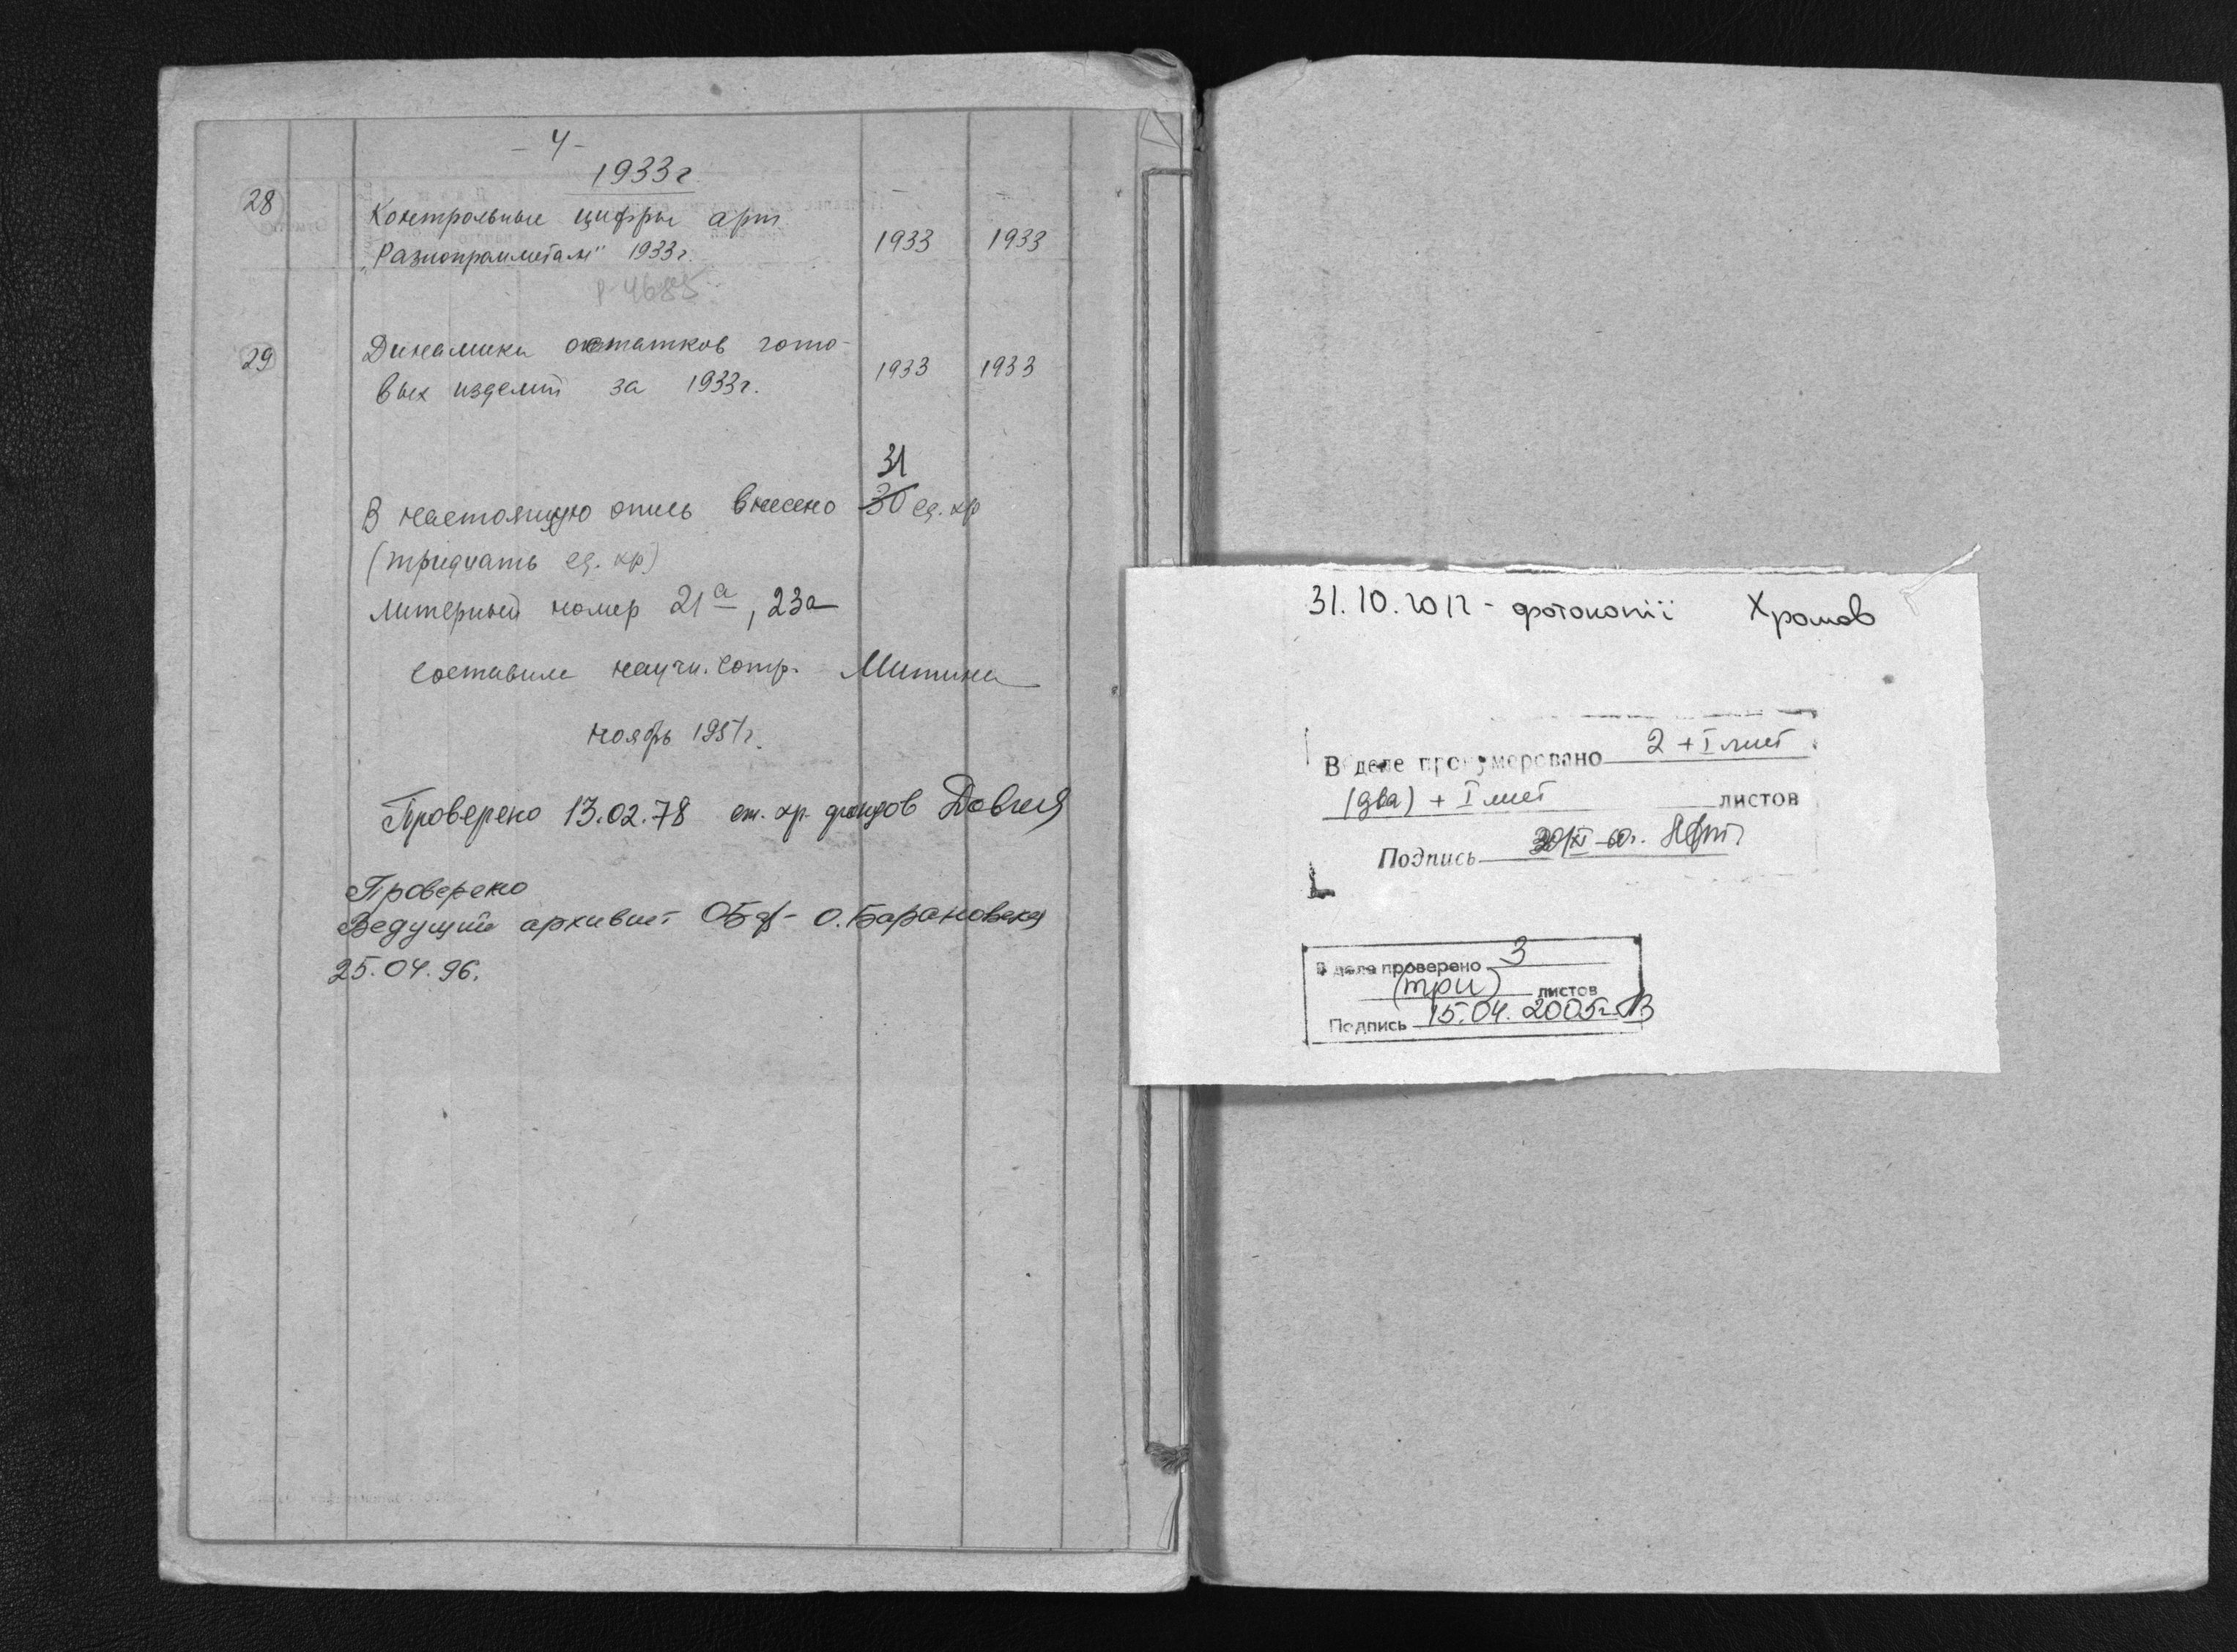 - 4 -
1933 г
28
Контрольные цифры арт.
„Разнопромметал" 1933 г. 1933 1933
Р-4685
29
Динамика остатков гото-
вых изделий за 1933 г. 1933 1933
31
В настоящую опись внесено 30 ед. хр
(тридцать ед. хр)
литерный номер 21а, 23а
Составила научн. сотр. Митина
ноябрь 1951 г.
Проверено 13.02.78 ст. хр. фондов
Проверено
Ведущий архивист О. Барановская
25.04.96.
31.10.2012 - фотокопії Хромов
В деле пронумеровано 2 + I лист
(два) + I лист листов
Подпись
В деле проверено 3
(три) листов
Подпись 15.04.2005 г.